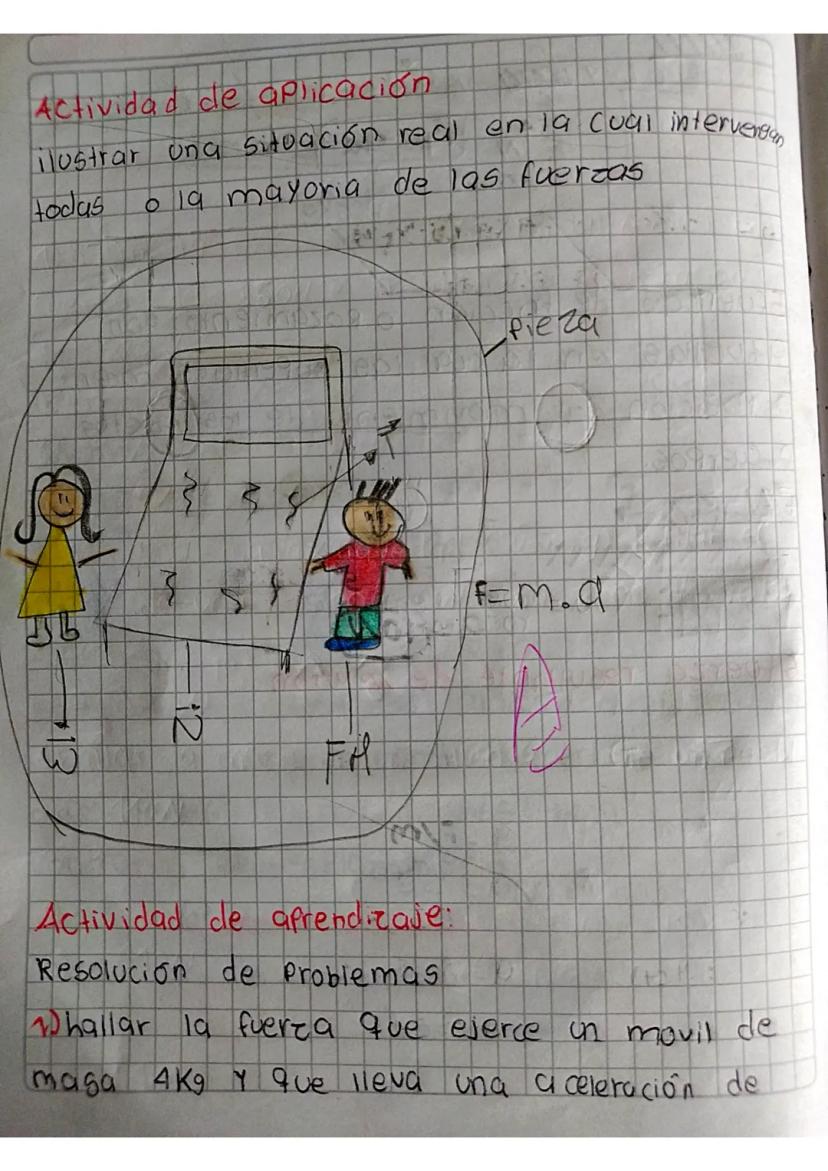 Actividad de aplicación
ilustrar una situación real en la cual intervengan
todas o la mayoria de las fuerzas
pieza
F=m.a
i3
i2
FA
Actividad de aprendizaje:
Resolución de Problemas
1) hallar la fuerza que ejerce un movil de
masa 4Kg y que lleva una aceleración de